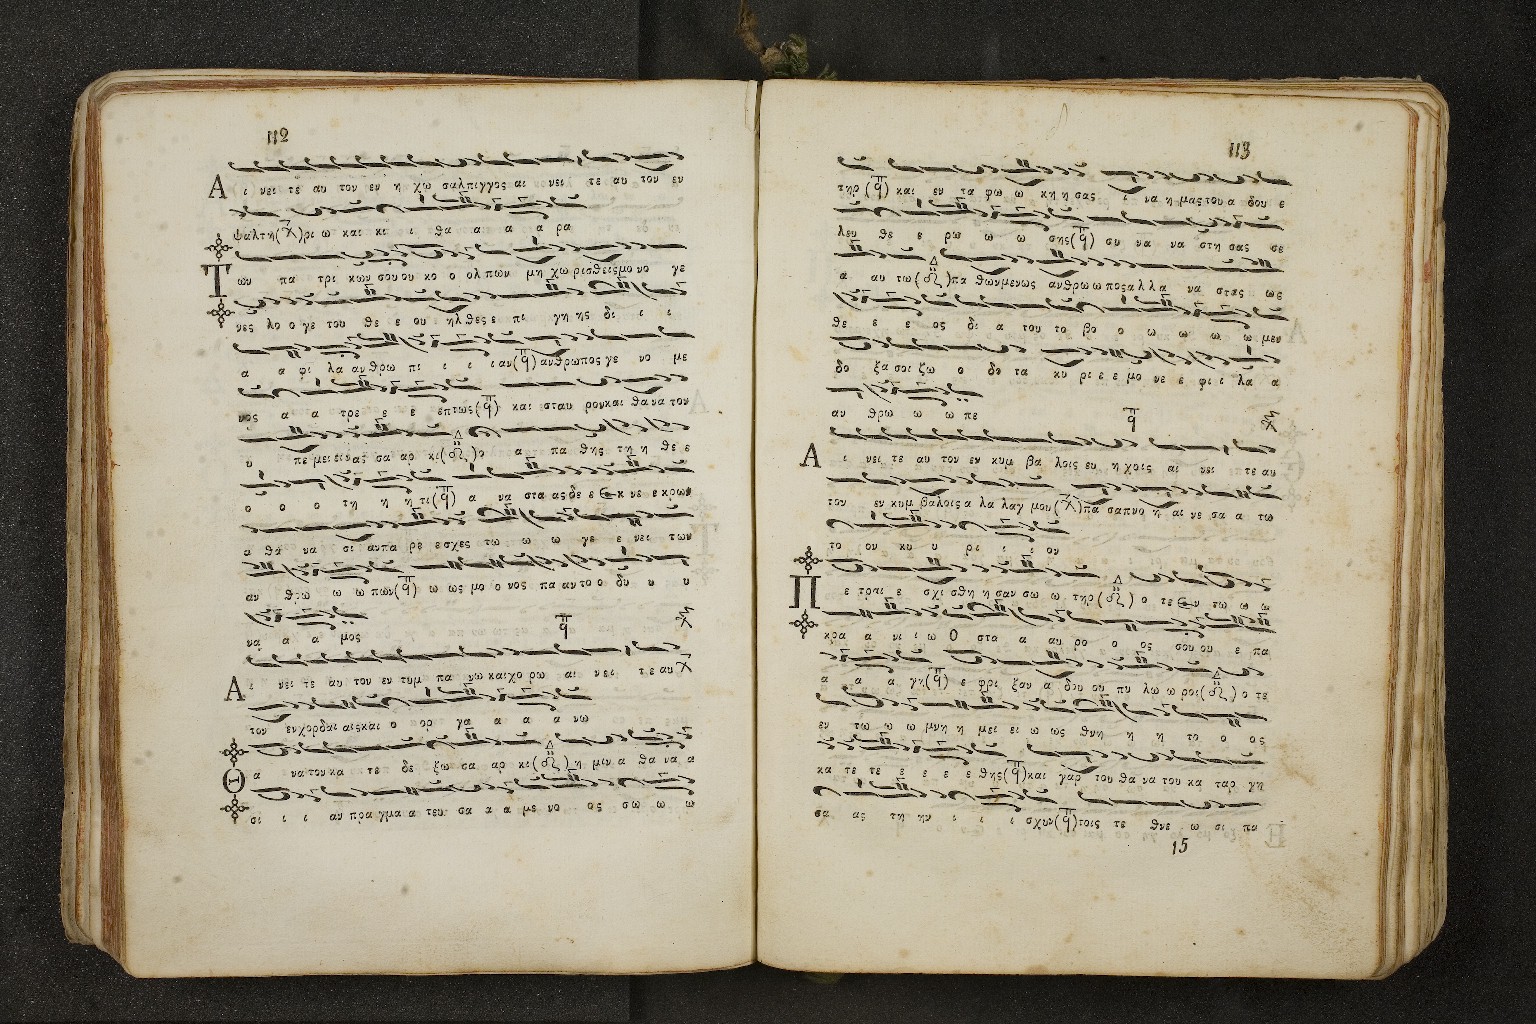 112
Α ι νει τε αυ τον εν η χω σαλπιγγος αι νει τε αυ τον εν
ψαλτη( )ρι ω και κι ι θα α α α ρα
Τ ων πα τρι κων σου ου κο ο ολ πων μη χω ρισθεις μο νο γε
νες λο ο γε του θε ε ου ηλθες ε πι γη ης δι ι ι
α α φι λα αν θρω πι ι ι ι αν(q) ανθρωπος γε νο με
νος α α τρε ε ε επτως(q) και σταυ ρον και θα να τον
υ πε μει εινας σα αρ κι( )ο α πα θης τη η θε ε
ο ο ο τη η η τι(q) α να στα ας δε ε εκ νε ε κρων
α θα να σι αν πα ρε εσχες τω ω ω γε ε νει των
αν θρω ω ω πων(q) ω ως μο ο νος πα αν το ο δυ υ υ
να α α μος q
Α ι νει τε αυ τον εν τυμ πα νω και χο ρω αι νει τε αυ
τον εν χορ δαι αις και ο ορ γα α α α νω
Θ α να του κα τε δε ξω σα αρ κι( ) η μιν α θα να α
σι ι ι αν πρα γμα α τευ σα α α με νο ος σω ω ω
113
τηρ (q) και εν τα φω ω κη η σας ι να η μας του α δου ε
λευ θε ε ρω ω ω σης(q) συ να να στη σας σε
α αυ τω( )πα θων μεν ως ανθρω ω πος αλ λα να στας ως
θε ε ε ος δι α του το βο ο ω ω ω ω μεν
δο ξα σοι ζω ο δο τα κυ ρι ε ε μο νε ε φι ι λα α
αν θρω ω ω πε q
Α ι νει τε αυ τον εν κυμ βα λοις ευ η χοις αι νει τε αυ
τον εν κυμ βαλοις α λα λαγ μου( )πα σα πνο η αι νε σα α τω
το ον κυ υ ρι ι ι ον
Π ε τραι ε σχι σθη η σαν σω ω τηρ( ) ο τε εν τω ω ω
κρα α νι ι ω Ο στα α αυ ρο ο ος σου ου ε πα
α α α γη(q) ε φρι ξαν α δου ου πυ λω ω ροι( ) ο τε
εν τω ω ω μνη η μει ει ω ως θνη η η το ο ος
κα τε τε ε ε ε ε θης(q)και γαρ του θα να του κα ταρ γη
σα ας τη ην ι ι ι σχυν(q)τοις τε θνε ω σι πα
15